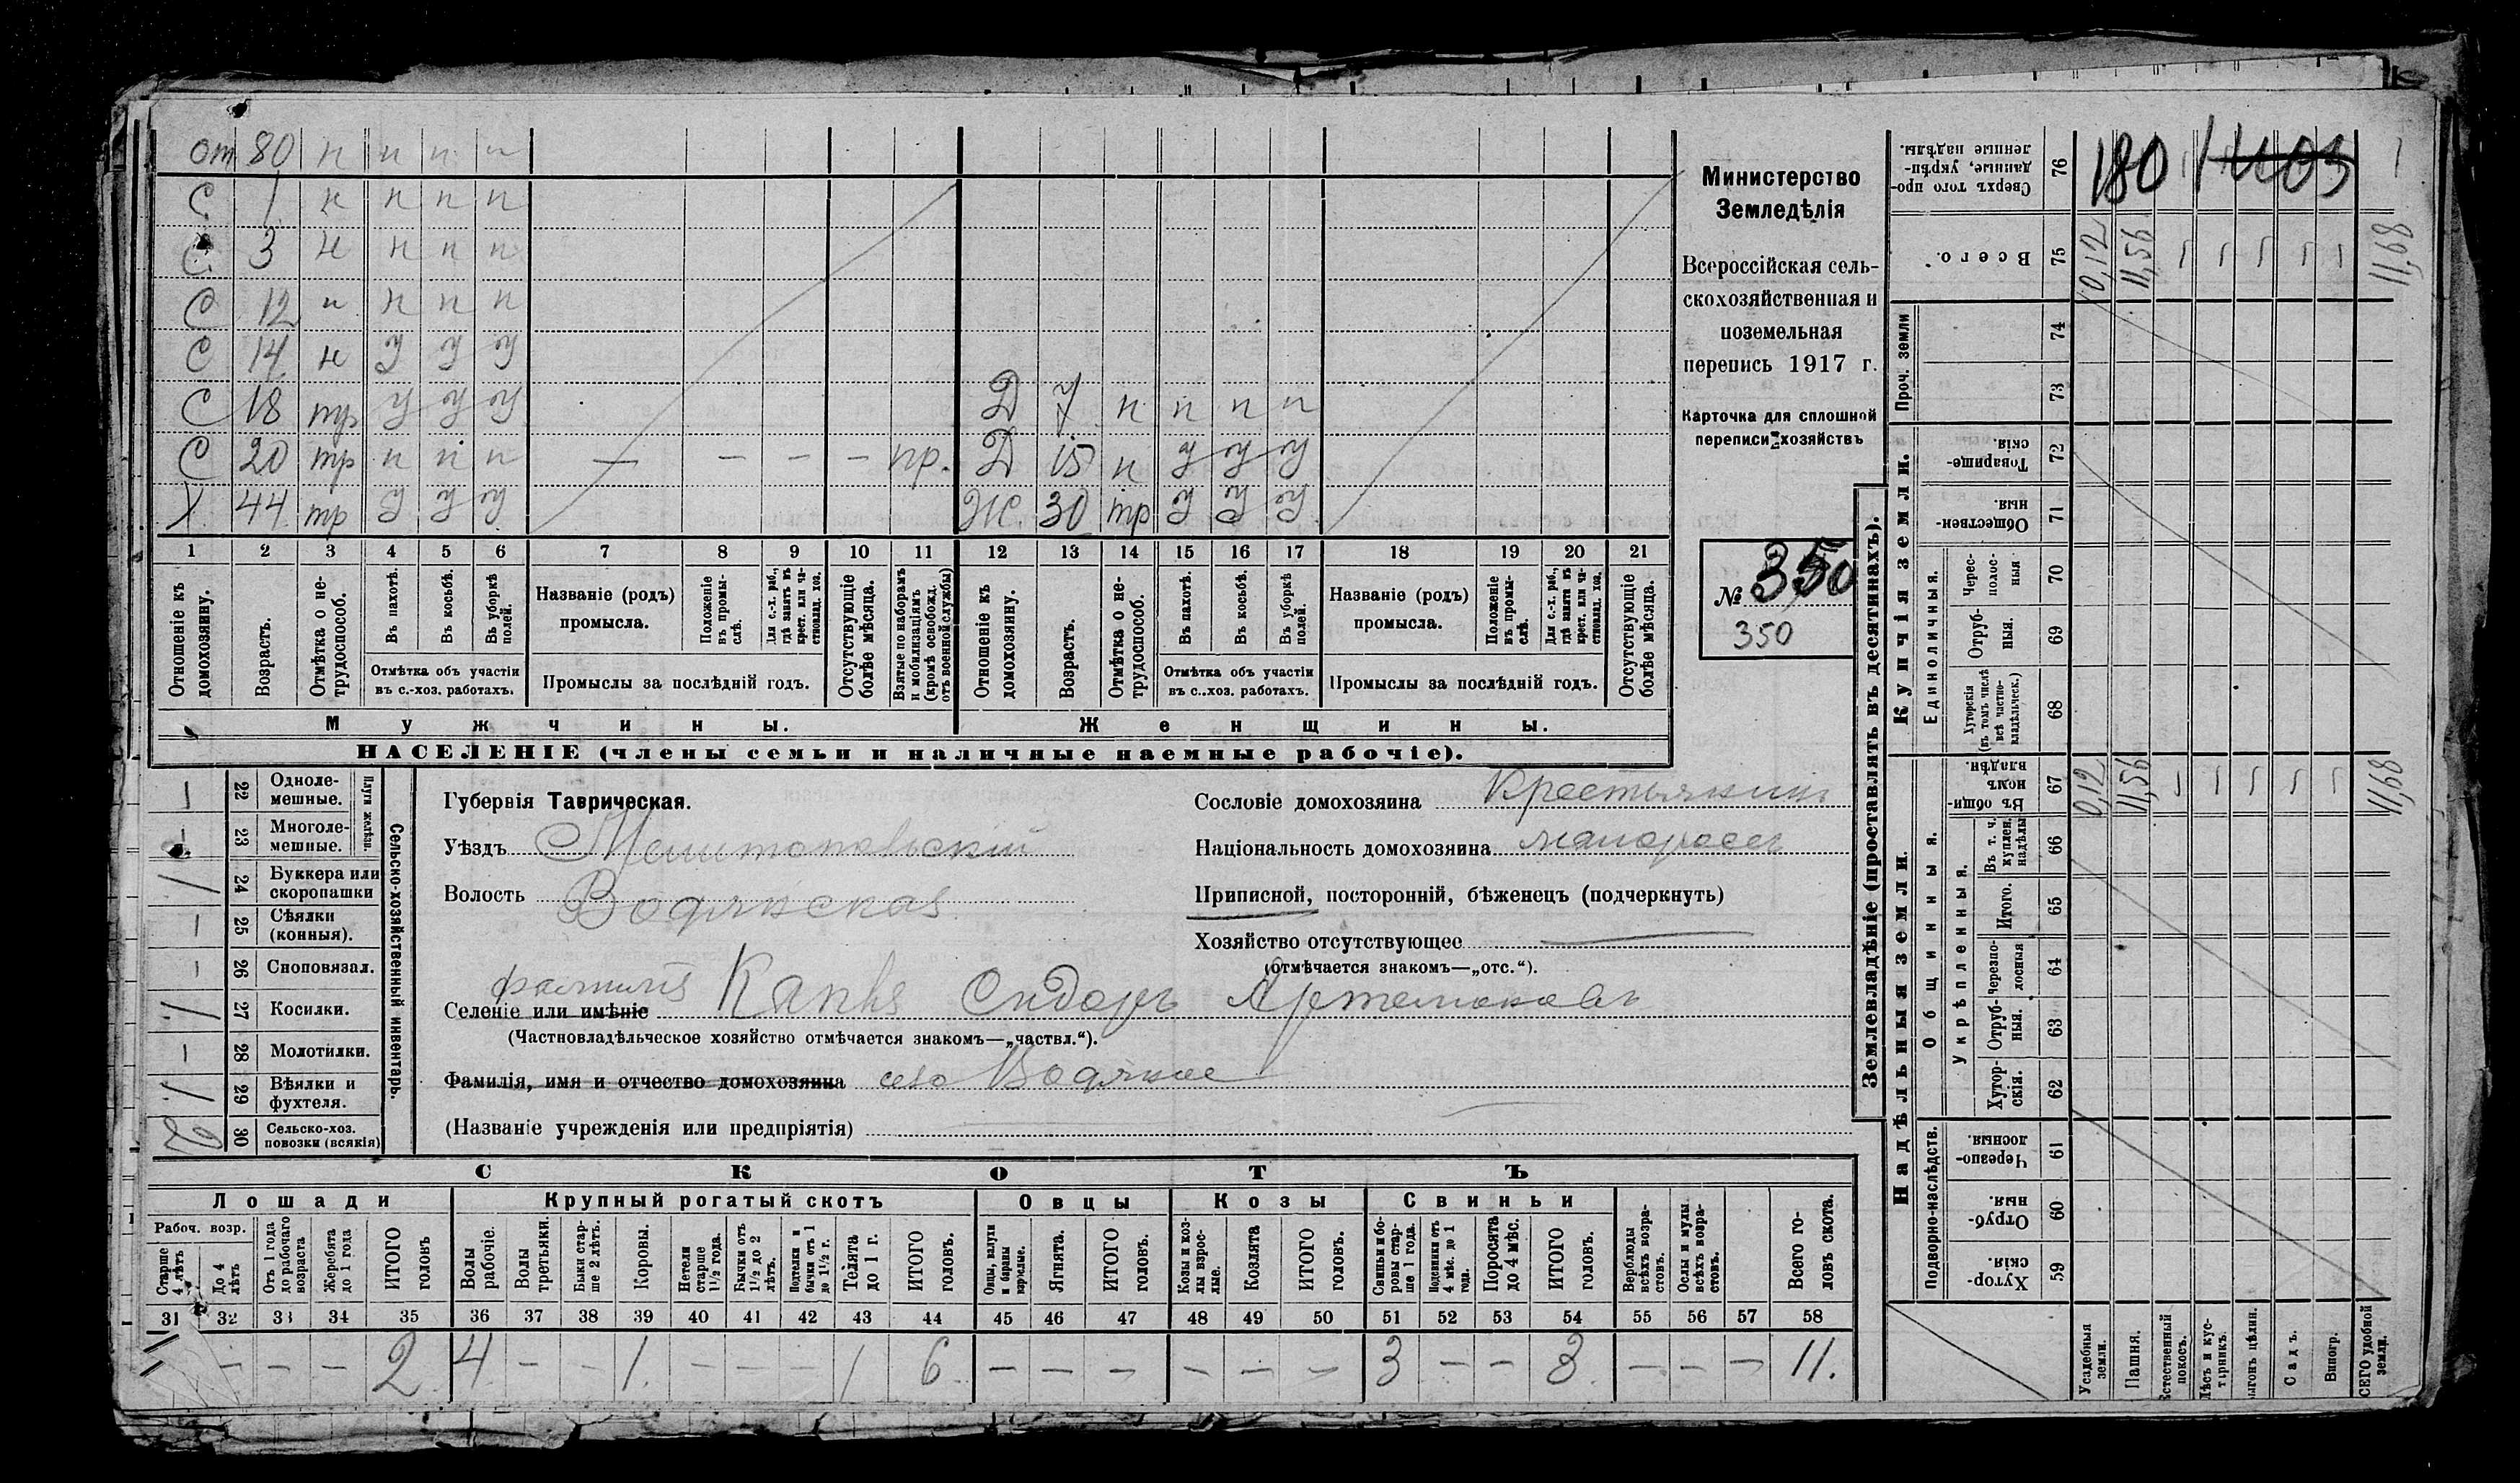 от 80 н н н н
С 1 н н н н
С 3 н н н н
С 12 н н н н
С 14 н у у у
С 18 тр у у у Д 7 н н н н
С 20 тр н н н — — — — пр. Д 15 н у у у
Х 44 тр у у у Ж 30 тр у у у
1 2 3 4 5 6 7 8 9 10 11 12 13 14 15 16 17 18 19 20 21
Отношеніе къ домохозяину.
Возрастъ.
Отмѣтка о не-
трудоспособ.
Въ пахотѣ.
Въ косьбѣ.
Въ уборкѣ полей.
Отмѣтка объ участіи
въ с.-хоз. работахъ.
Названіе (родъ)
промысла.
Положеніе въ промы-
слѣ.
Для с.-х. раб., гдѣ занятъ въ крест. или ча-
стновлад. хоз.
Промыслы за послѣдній годъ.
Отсутствующіе болѣе мѣсяца.
Взятые по наборамъ и мобилизаціямъ (кромѣ освобожд. отъ военной службы)
Отношеніе къ домохозяину.
Возрастъ.
Отмѣтка о не-
трудоспособ.
Въ пахотѣ.
Въ косьбѣ.
Въ уборкѣ полей.
Отмѣтка объ участіи
въ с.-хоз. работахъ.
Названіе (родъ)
промысла.
Положеніе въ промы-
слѣ.
Для с.-х. раб., гдѣ занята въ крест. или ча-
стновлад. хоз.
Промыслы за послѣдній годъ.
Отсутствующіе болѣе мѣсяца.
Мужчины.
Женщины.
НАСЕЛЕНІЕ (члены семьи и наличные наемные рабочіе).
Министерство
Земледѣлія
Всероссійская сель-
скохозяйственная и
поземельная
перепись 1917 г.
Карточка для сплошной
переписи хозяйствъ
№ 350
350
Сельско-хозяйственный инвентарь.
Плуги желѣзн.
— 22 Одноле-
мешные.
— 23 Многоле-
мешные.
1 24 Буккера или
скоропашки
— 25 Сѣялки
(конныя).
— 26 Сноповязал.
1. 27 Косилки.
— 28 Молотилки.
1. 29 Вѣялки и
фухтеля.
2 30 Сельско-хоз.
повозки (всякія)
Губернія Таврическая.
Уѣздъ Мелитопольскій
Волость Водянская
Сословіе домохозяина Крестьянинъ
Національность домохозяина малороссъ
Приписной, посторонній, бѣженецъ (подчеркнуть)
Хозяйство отсутствующее
(отмѣчается знакомъ—„отс.“).
фамилія
Селеніе или имѣніе Капка Сидоръ Артемоновъ
(Частновладѣльческое хозяйство отмѣчается знакомъ—„частвл.“).
Фамилія, имя и отчество домохозяина село Водяное
(Названіе учрежденія или предпріятія)
СКОТЪ
Лошади Крупный рогатый скотъ Овцы Козы Свиньи
Рабоч. возр.
Старше 4 лѣтъ
До 4 лѣтъ
Отъ 1 года до рабочаго возраста
Жеребята до 1 года
ИТОГО головъ
Волы рабочіе.
Волы третьяки.
Быки стар-
ше 2 лѣтъ.
Коровы.
Нетели старше 1½ года.
Бычки отъ 1½ до 2 лѣтъ.
Подтелки и бычки отъ 1 до 1½ г.
Телята до 1 г.
ИТОГО головъ.
Овцы, валухи и бараны взрослые.
Ягнята.
ИТОГО головъ.
Козы и коз-
лы взрос-
лые.
Козлята
ИТОГО головъ.
Свиньи и бо-
ровы стар-
ше 1 года.
Подсвинки отъ 4 мѣс. до 1 года.
Поросята до 4 мѣс.
ИТОГО головъ.
Верблюды всѣхъ возра-
стовъ.
Ослы и мулы всѣхъ возра-
стовъ.
Всего го-
ловъ скота.
31 32 33 34 35 36 37 38 39 40 41 42 43 44 45 46 47 48 49 50 51 52 53 54 55 56 57 58
— — — 2 4 — — 1. — — — 1 6 — — — — — — 3 — — 3 — — — 11.
Землевладѣніе (проставлять въ десятинахъ).
Купчія земли.
Надѣльныя земли.
Сверхъ того про-
данные, укрѣп-
ленные надѣлы.
76
180
1403
Всего.
75
0,12 11,56 11,68
Проч. земли
74
73
Товарище-
скія.
72
Обществен-
ныя.
71
Единоличныя.
Черес-
полос-
ныя
70
Отруб-
ныя.
69
Хуторскія (въ томъ числѣ всѣ частно-
владѣльческ.)
68
Общинныя.
Въ общи-
номъ
владѣн.
67
0,12 11,56 11,68
Въ т. ч. куплен. надѣлы
66
Укрѣпленныя.
Итого.
65
Черезпо-
лосныя
64
Отруб-
ныя.
63
Хутор-
скія.
62
Подворно-наслѣдств.
Черезпо-
лосныя.
61
Отруб-
ныя.
60
Хутор-
скія.
59
Усадебныя земли.
Пашня.
Естественный покосъ.
Лѣсъ и кус-
тарникъ.
Выгонъ цѣлин.
Садъ.
Виногр.
ВСЕГО удобной земли.